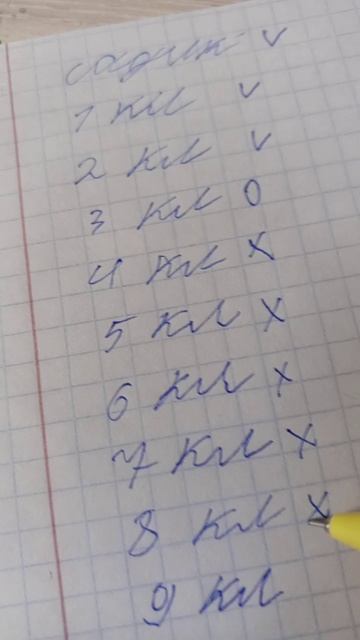 садик v
1 кл v
2 кл v
3 кл 0
4 кл х
5 кл х
6 кл х
7 кл х
8 кл х
9 кл